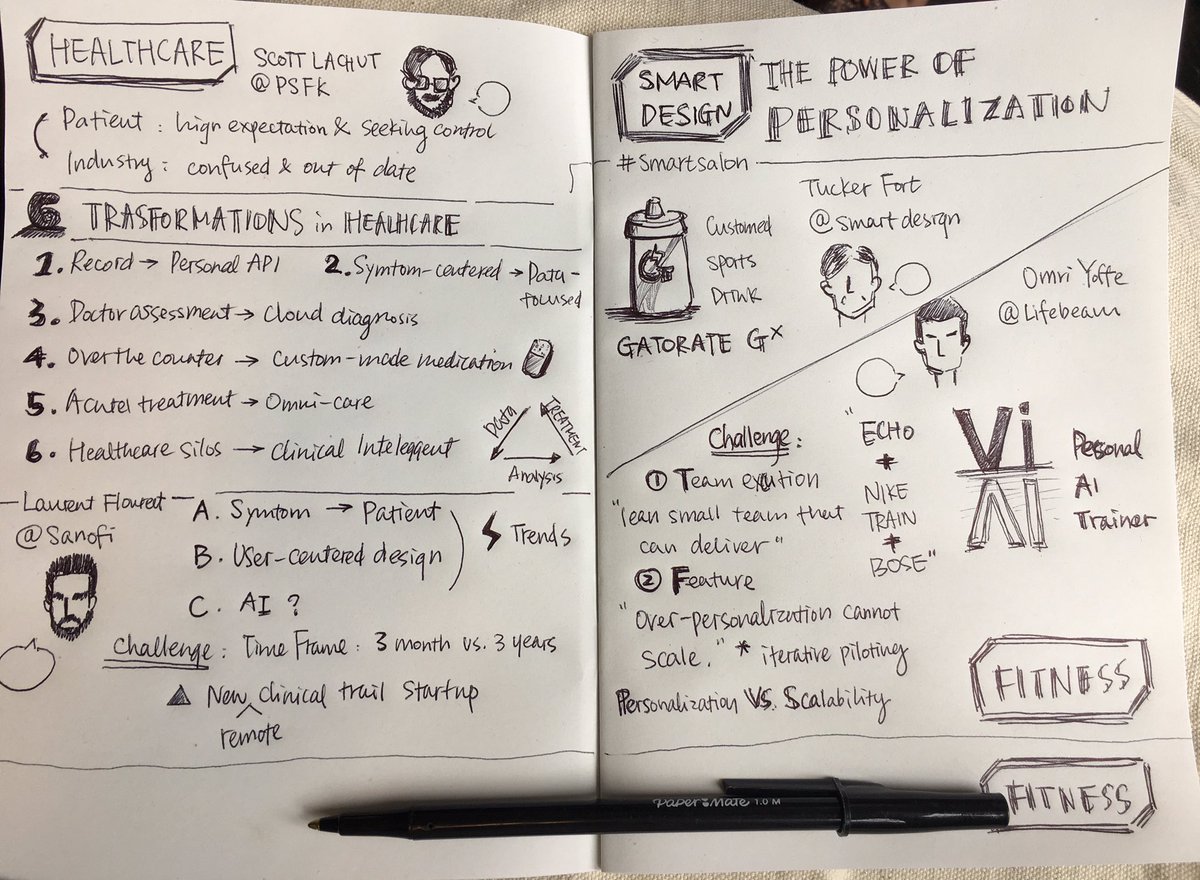 HEALTHCARE
SCOTT LACHUT
@PSFK
Patient : high expectation & seeking control
Industry : confused & out of date
6 TRASFORMATIONS in HEALTHCARE
1. Record → Personal API
2. Symtom-centered → Data-
focused
3. Doctor assessment → Cloud diagnosis
4. Over the counter → Custom-made medication
5. Acutel treatment → Omni-care
6. Healthcare silos → Clinical Inteleggent
DATA
TREATMENT
Analysis
Laurent Flouret
@Sanofi
A. Symtom → Patient
B. User-centered design
C. AI ?
Trends
Challenge : Time Frame : 3 month vs. 3 years
▲ New clinical trail startup
remote
SMART
DESIGN
THE POWER OF
PERSONALIZATION
#Smartsalon
Tucker Fort
@smart design
Customed
Sports
Drink
G
GATORATE Gx
Omri Yoffe
@Lifebeam
Challenge :
① Team exution
"lean small team that
can deliver"
② Feature
"Over-personalization cannot
scale." * iterative piloting
Personalization VS. Scalability
"ECHO
+
NIKE
TRAIN
+
BOSE"
Vi
AI
Personal
AI
Trainer
FITNESS
FITNESS
Paper Mate 1.0 M